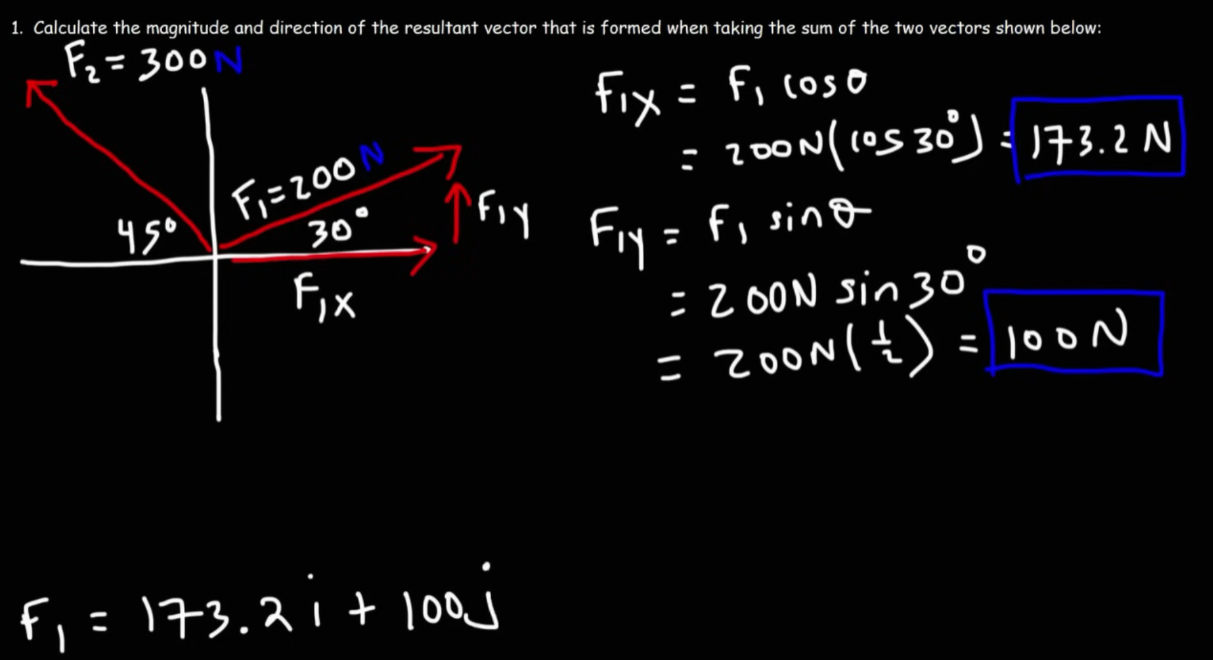 1. Calculate the magnitude and direction of the resultant vector that is formed when taking the sum of the two vectors shown below:
F₂ = 300N
F₁=200N
45°
30°
F₁y
F₁x
F₁x = F₁ cosθ
= 200N(cos30°) = 173.2N
F₁y = F₁ sinθ
= 200N sin30°
= 200N(½) = 100N
F₁ = 173.2i + 100j